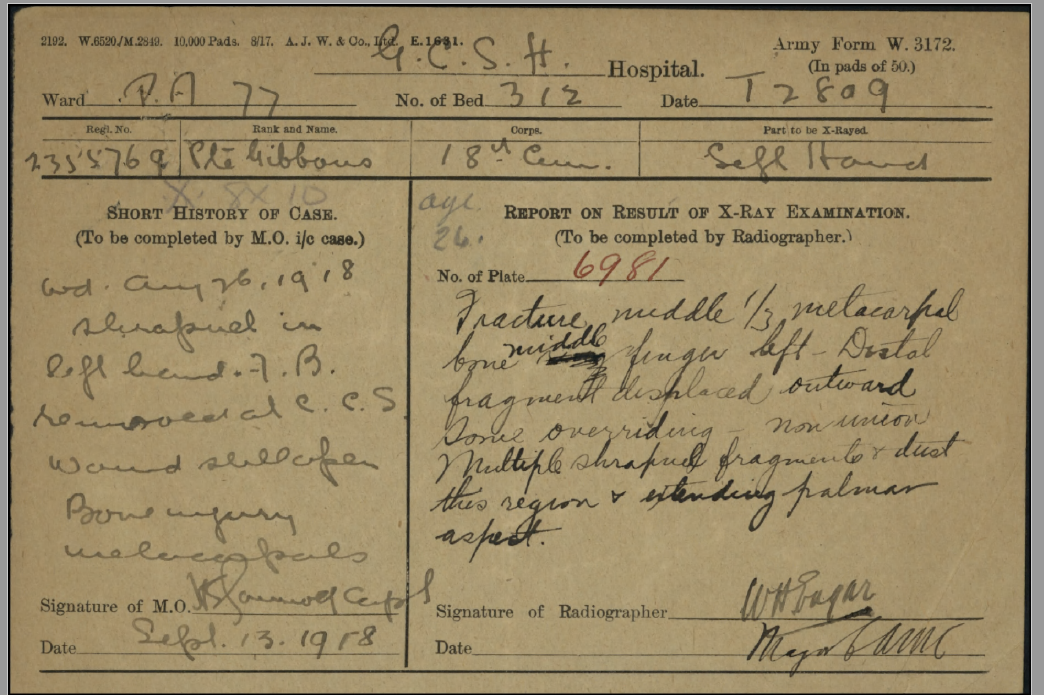 2192. W.6520./M.2849. 10,000 Pads. 8/17. A. J. W. & Co., Ltd. E.1631.
Army Form W. 3172.
(In pads of 50.)
G.C.S.H. Hospital.
Ward P.A 77 No. of Bed 312 Date T2809
Regl. No. Rank and Name. Corps. Part to be X-Rayed.
2355769 Pte Gibbons 18th Can. Left Hand
X. 8x10
SHORT HISTORY OF CASE.
(To be completed by M.O. i/c case.)
wd. Aug 26, 1918
shrapnel in
left hand. F.B.
removed at C.C.S.
Wound still open
Bone injury
metacarpals
Signature of M.O. Capt
Date Sept. 13. 1918
age
26.
REPORT ON RESULT OF X-RAY EXAMINATION.
(To be completed by Radiographer.)
No. of Plate 6981
Fracture middle 1/3 metacarpal
bone middle finger left – Distal
fragment displaced outward
Some overriding – non union
Multiple shrapnel fragments & dust
this region & extending palmar
aspect.
Signature of Radiographer WH Eagar
Date Major CAMC